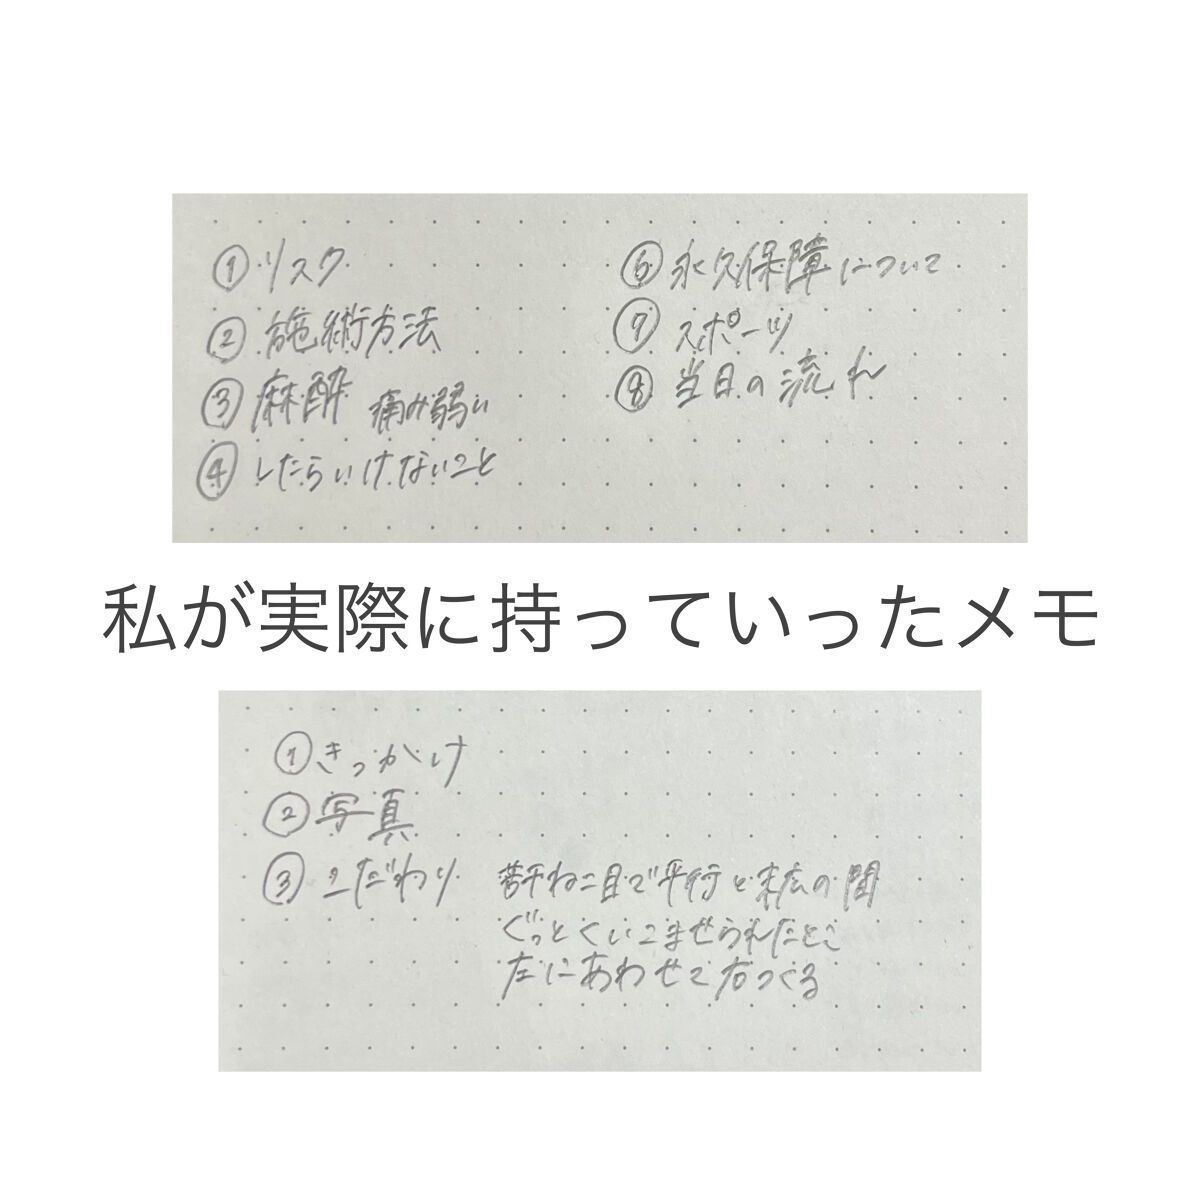 ①リスク
②施術方法
③麻酔 痛み弱い
④したらいけないこと
⑥永久保障について
⑦スポーツ
⑧当日の流れ
私が実際に持っていったメモ
①きっかけ
②写真
③こだわり 若干ねこ目で平行と末広の間
ぐっとくいこませられたとこ
左にあわせて右つくる